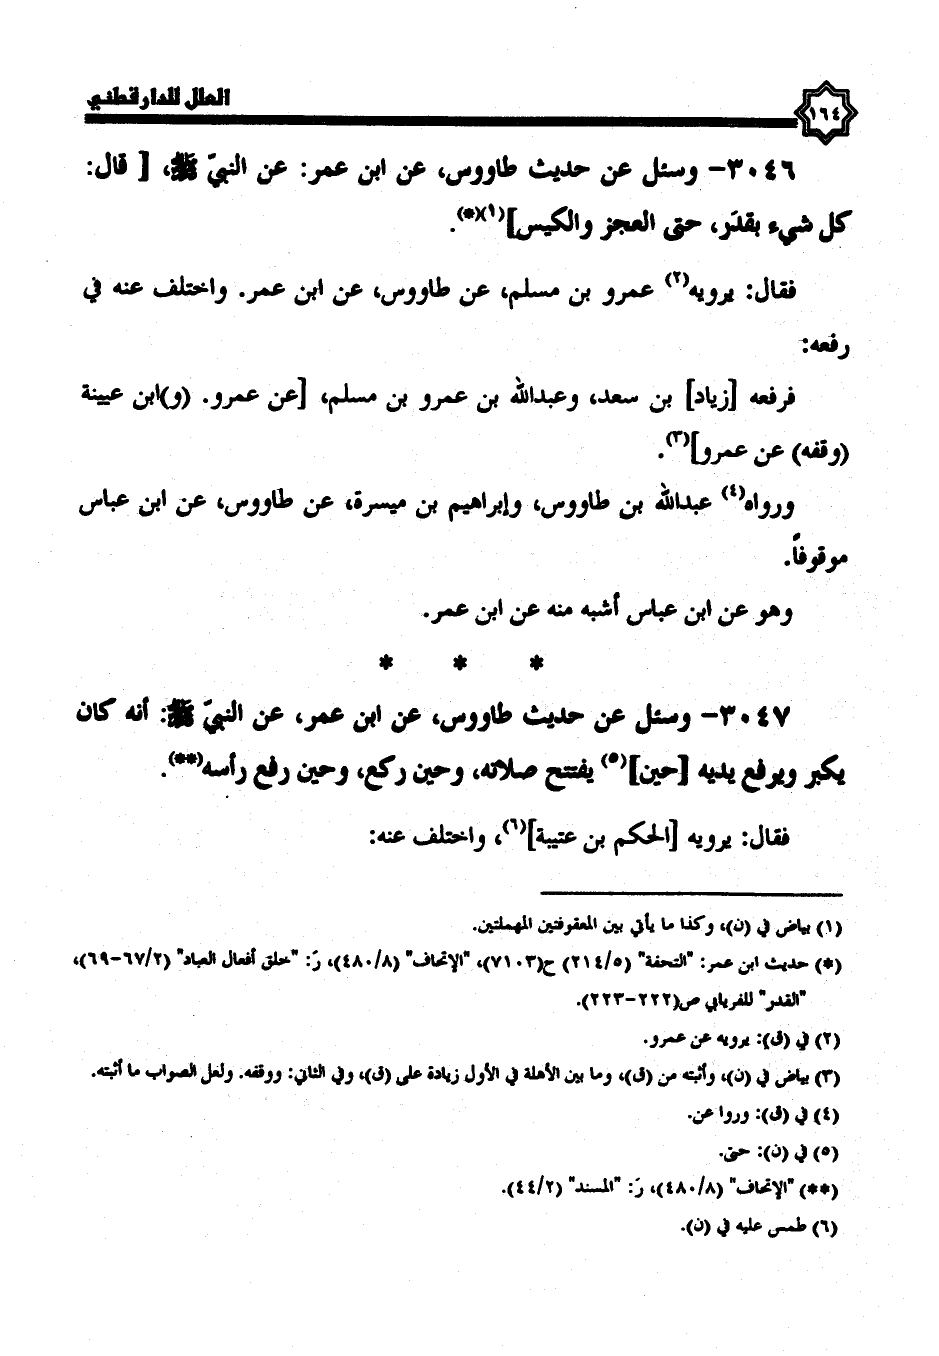 العلل للدارقطني
١٦٤
٣٠٤٦- وسئل عن حديث طاووس، عن ابن عمر: عن النبيّ ﷺ، [ قال:
كل شيء بقدَر، حتى العجز والكيس](١)(*).
فقال: يرويه(٢) عمرو بن مسلم، عن طاووس، عن ابن عمر. واختلف عنه في
رفعه:
فرفعه [زياد] بن سعد، وعبدالله بن عمرو بن مسلم، [عن عمرو. (و)ابن عيينة
(وقفه) عن عمرو](٣).
ورواه(٤) عبدالله بن طاووس، وإبراهيم بن ميسرة، عن طاووس، عن ابن عباس
موقوفاً.
وهو عن ابن عباس أشبه منه عن ابن عمر.
* * *
٣٠٤٧- وسئل عن حديث طاووس، عن ابن عمر، عن النبيّ ﷺ: أنه كان
يكبر ويرفع يديه [حين](٥) يفتتح صلاته، وحين ركع، وحين رفع رأسه(**).
فقال: يرويه [الحكم بن عتيبة](٦)، واختلف عنه:
(١) بياض في (ن)، وكذا ما يأتي بين المعقوفتين المهملتين.
(*) حديث ابن عمر: "التحفة" (٢١٤/٥) ح(٧١٠٣)، "الإتحاف" (٤٨٠/٨)، رَ: "خلق أفعال العباد" (٦٧/٢-٦٩)،
"القدر" للفريابي ص(٢٢٢-٢٢٣).
(٢) في (ق): يرويه عن عمرو.
(٣) بياض في (ن)، وأثبته من (ق)، وما بين الأهلة في الأول زيادة على (ق)، وفي الثاني: ووقفه. ولعل الصواب ما أثبته.
(٤) في (ق): وروا عن.
(٥) في (ن): حتى.
(**) "الإتحاف" (٤٨٠/٨)، رَ: "المسند" (٤٤/٢).
(٦) طمس عليه في (ن).